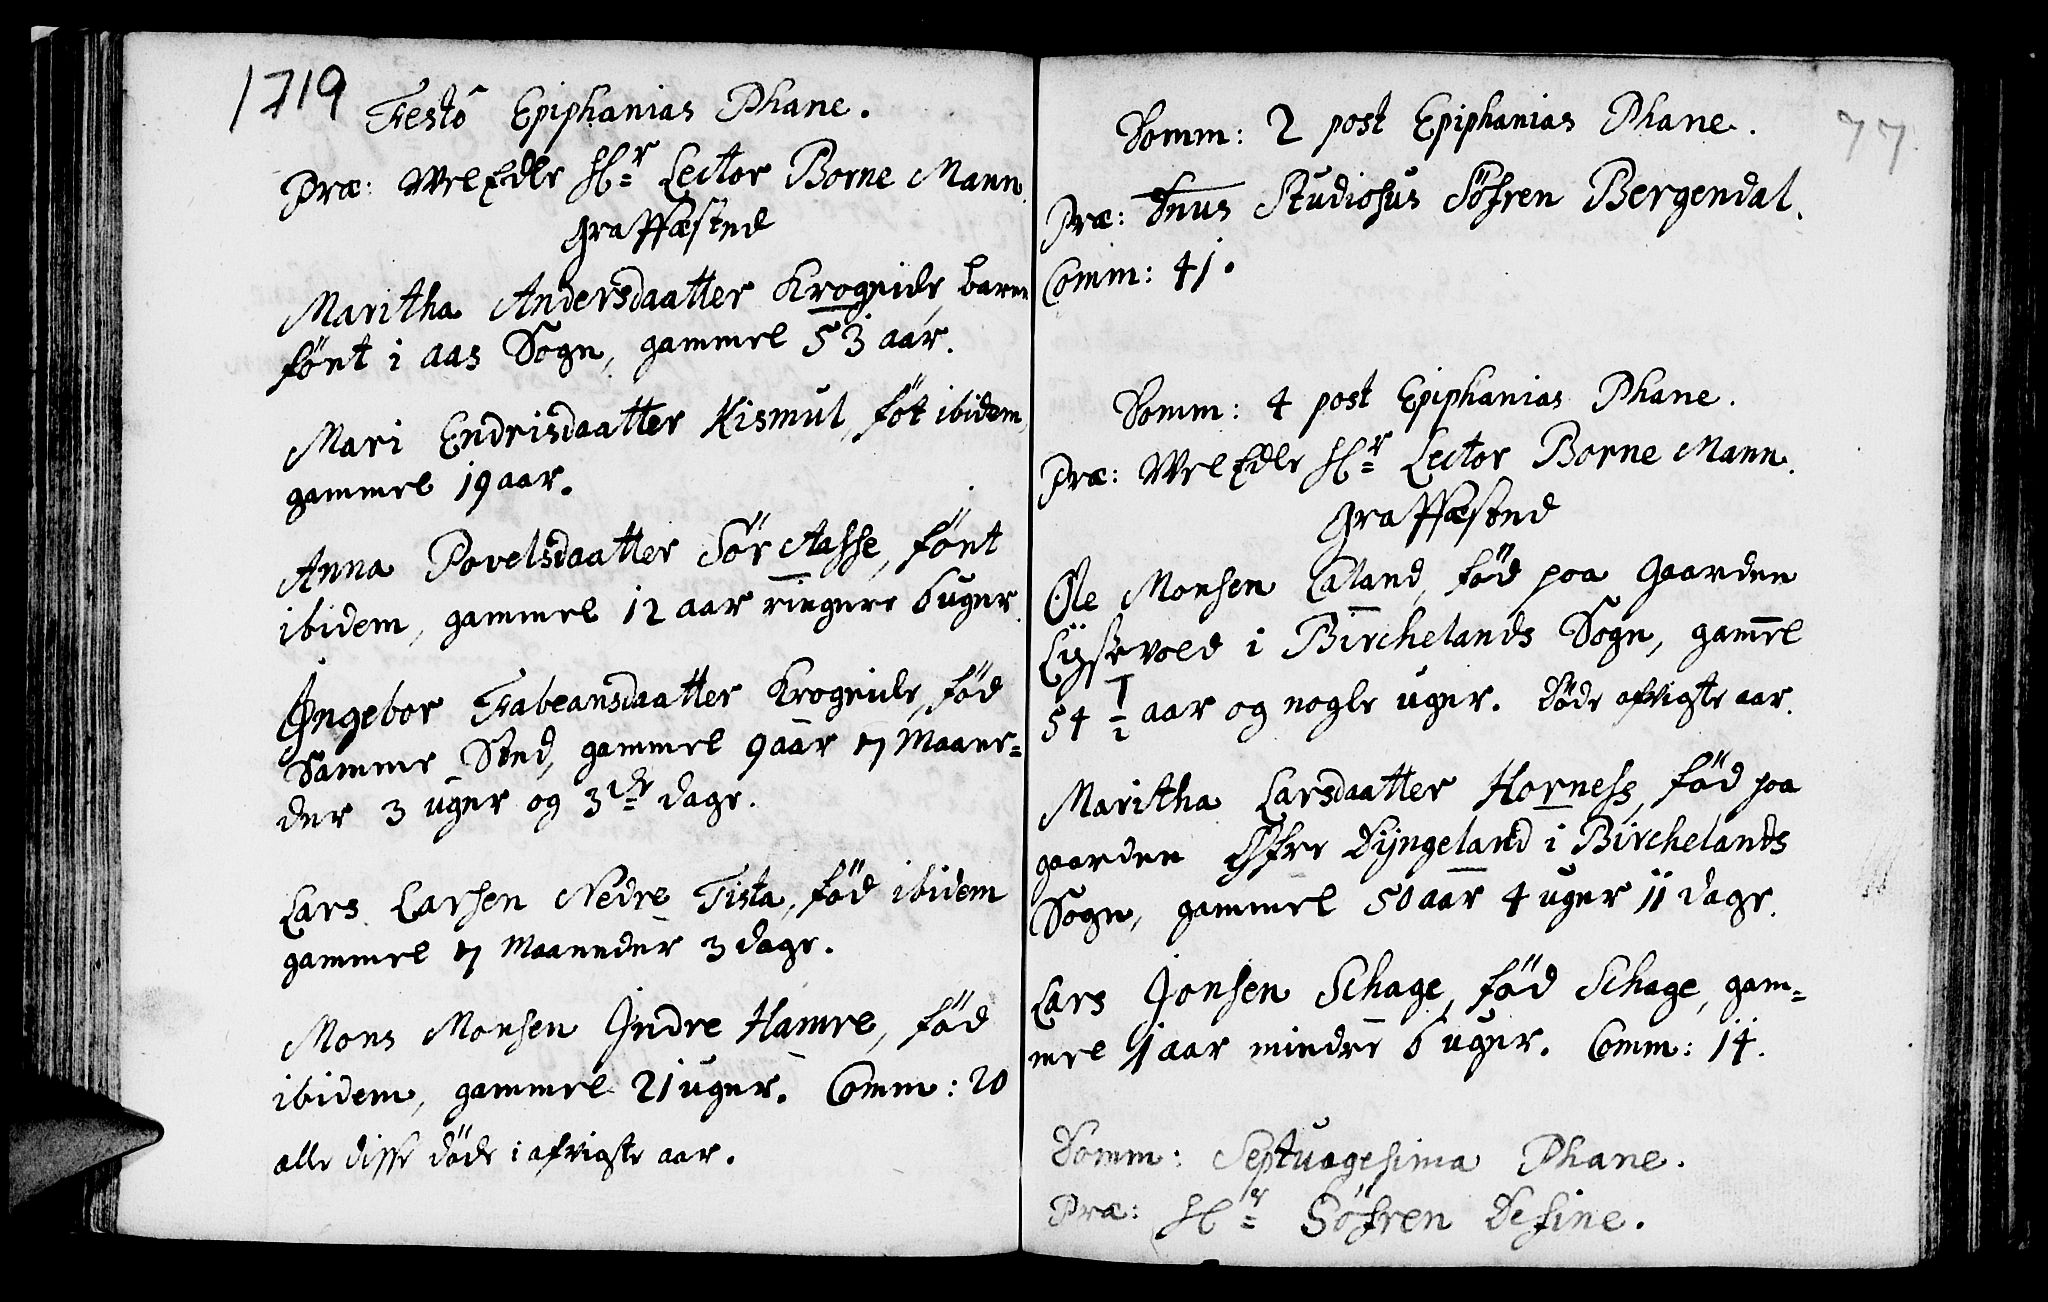 1719
Festo Epiphanias Phane.
Præ: WelEdle Hr Lector Borne Mann.
Graffæsted
Maritha Andersdaatter Krogeide, barn
fönt i Aas Sogn, gammel 53 aar.
Mari Endrisdaatter Kismul, föt ibidem,
gammel 19 aar.
Anna Povelsdaatter Sör Aasse, fönt
ibidem, gammel 12 aar ringere 6 uger.
Ingebor Fabeansdaatter Krogeide, föd
Samme Sted, gammel 9 aar 7 Maane=
der 3 uger og 3de dage.
Lars Larsen Nedre Tista, föd ibidem
gammel 7 Maaneder 3 dage.
Mons Monsen Indre Hamre, föd
ibidem, gammel 21 uger. Comm: 20
alle disse döde i afvigste aar.
77
Domm: 2 post Epiphanias Phane.
Præ: Dnus Studiosus Söfren Bergendal.
Comm: 41.
Domm: 4 post Epiphanias Phane.
Præ: WelEdle Hr Lector Borne Mann.
Graffæsted
Ole Monsen Låland, föd paa Gaarden
Lysevold i Birchelands Sogn, gamel
54 1/2 aar og nogle uger. döde afvigste aar.
Maritha Larsdaatter Horness, föd paa
gaarden Öfre Dyngeland i Birchelands
Sogn, gammel 50 aar 4 uger 11 dage.
Lars Jonsen Schage, föd Schage, gam=
mel 1 aar mindre 6 uger. Comm: 14.
Domm: Septuagesima Phane.
Præ: Hr Söfren Define.